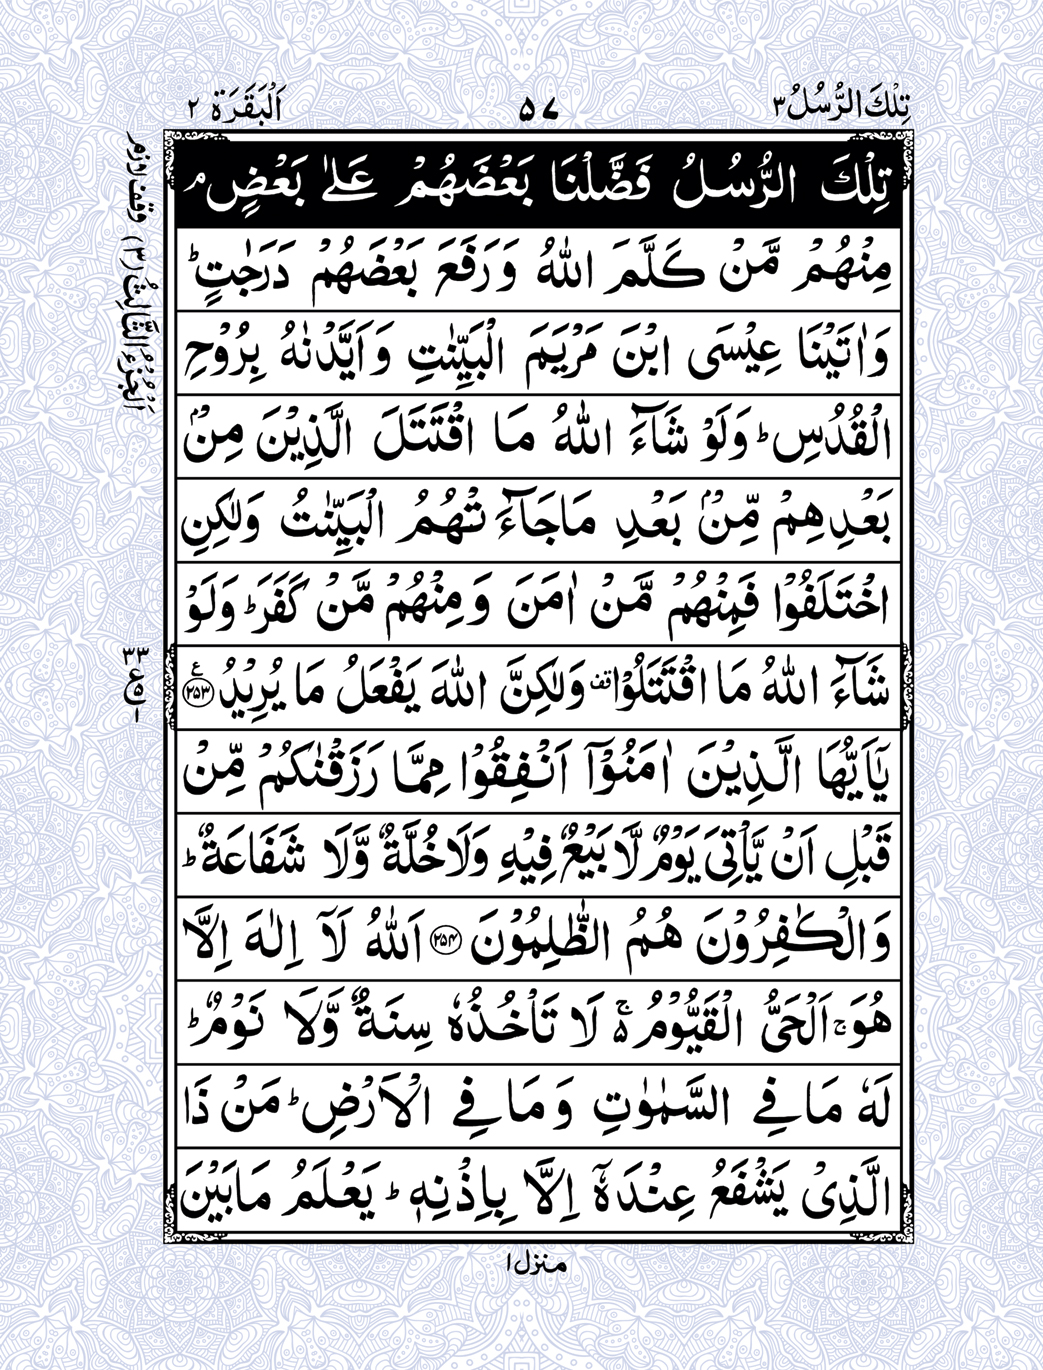 تِلْكَ الرُّسُلُ ٣
٥٧
اَلْبَقَرَة ٢
تِلْكَ الرُّسُلُ فَضَّلْنَا بَعْضَهُمْ عَلٰى بَعْضٍۘ
مِنْهُمْ مَّنْ كَلَّمَ اللّٰهُ وَرَفَعَ بَعْضَهُمْ دَرَجٰتٍؕ
وَاٰتَيْنَا عِيْسَى ابْنَ مَرْيَمَ الْبَيِّنٰتِ وَاَيَّدْنٰهُ بِرُوْحِ
الْقُدُسِؕ وَلَوْ شَآءَ اللّٰهُ مَا اقْتَتَلَ الَّذِيْنَ مِنْۢ
بَعْدِهِمْ مِّنْۢ بَعْدِ مَا جَآءَتْهُمُ الْبَيِّنٰتُ وَلٰكِنِ
اخْتَلَفُوْا فَمِنْهُمْ مَّنْ اٰمَنَ وَمِنْهُمْ مَّنْ كَفَرَؕ وَلَوْ
شَآءَ اللّٰهُ مَا اقْتَتَلُوْا قف وَلٰكِنَّ اللّٰهَ يَفْعَلُ مَا يُرِيْدُ ﴿۲۵۳﴾ ع
يٰۤاَيُّهَا الَّذِيْنَ اٰمَنُوْۤا اَنْفِقُوْا مِمَّا رَزَقْنٰكُمْ مِّنْ
قَبْلِ اَنْ يَّاْتِىَ يَوْمٌ لَّا بَيْعٌ فِيْهِ وَلَا خُلَّةٌ وَّلَا شَفَاعَةٌؕ
وَالْكٰفِرُوْنَ هُمُ الظّٰلِمُوْنَ ﴿۲۵۴﴾ اَللّٰهُ لَاۤ اِلٰهَ اِلَّا
هُوَۚ اَلْحَىُّ الْقَيُّوْمُ ۵ۚ لَا تَاْخُذُهٗ سِنَةٌ وَّلَا نَوْمٌؕ
لَهٗ مَا فِى السَّمٰوٰتِ وَمَا فِى الْاَرْضِؕ مَنْ ذَا
الَّذِىْ يَشْفَعُ عِنْدَهٗۤ اِلَّا بِاِذْنِهٖؕ يَعْلَمُ مَا بَيْنَ
اَلْجُزْءُ الثَّالِثُ (٣) وقف لازم
منزل ١